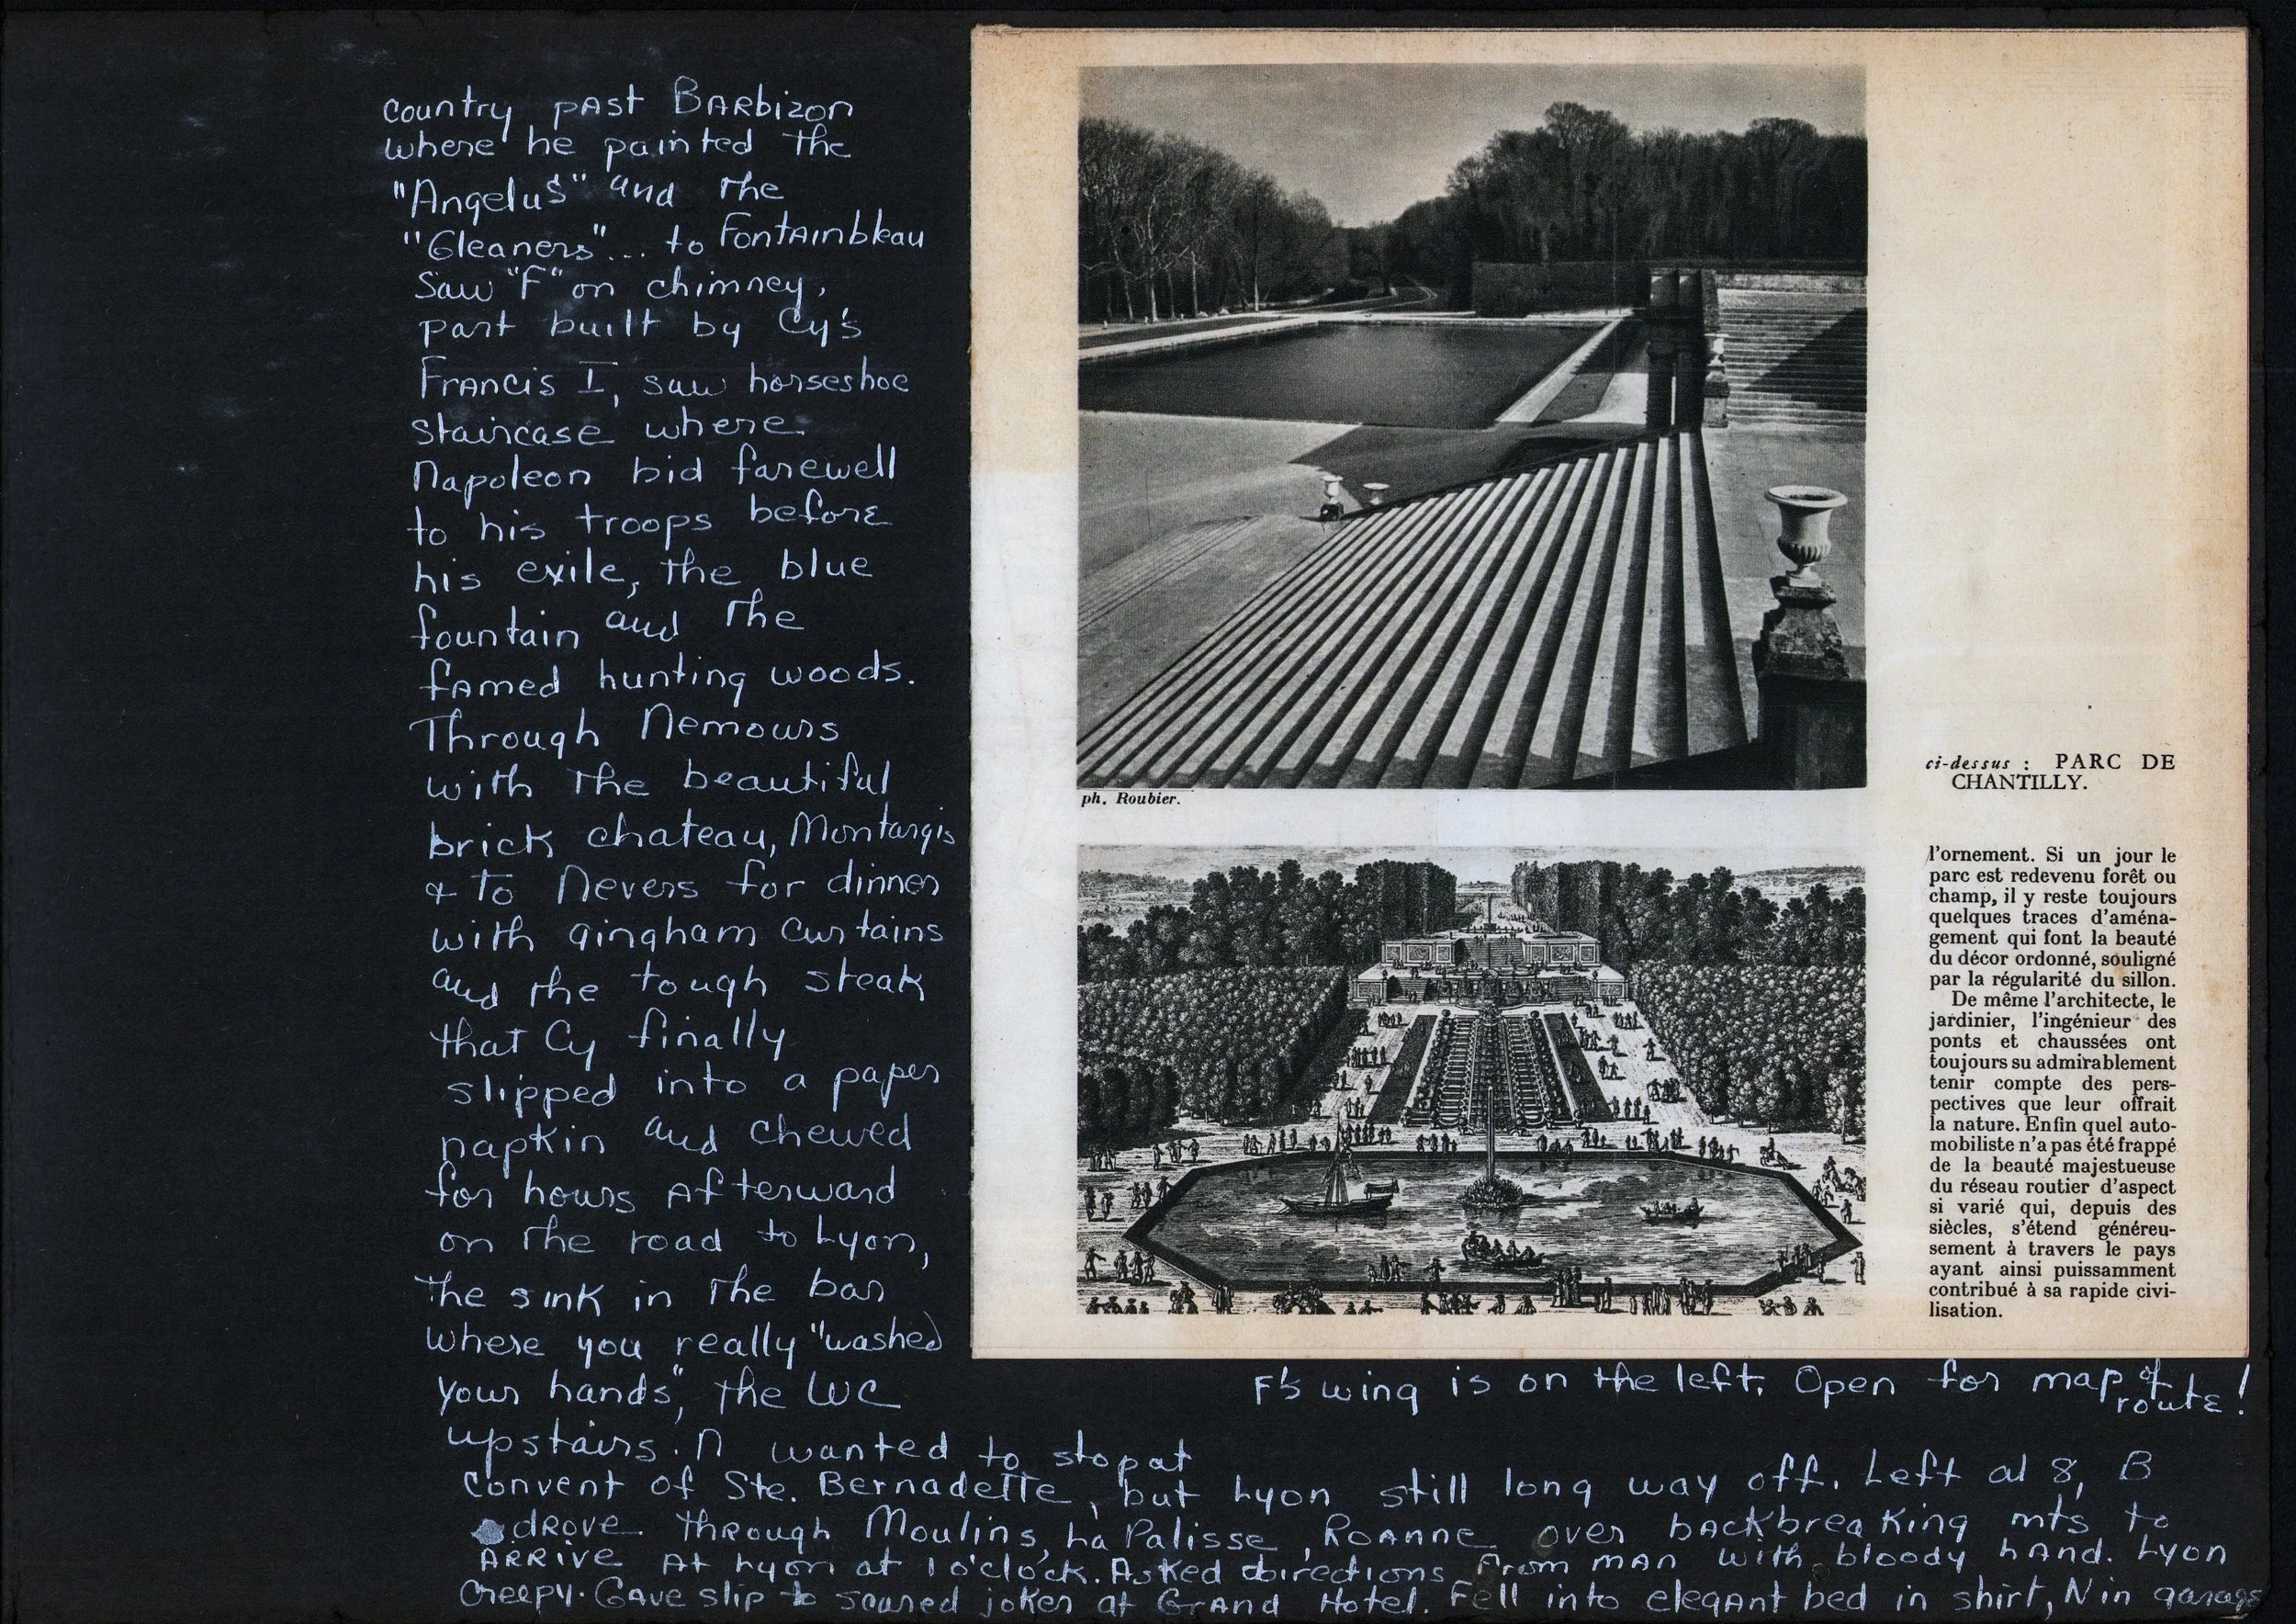 country past Barbizon
where he painted the
"Angelus" and the
"Gleaners"... to Fontainbleau
Saw "F" on chimney,
part built by Cy's
Francis I, saw horseshoe
staircase where
Napoleon bid farewell
to his troops before
his exile, the blue
fountain and the
famed hunting woods.
Through Nemours
with the beautiful
brick chateau, Montargis
& to Nevers for dinner
with gingham curtains
and the tough steak
that Cy finally
slipped into a paper
napkin and chewed
for hours afterward
on the road to Lyon,
the sink in the bar
where you really "washed
your hands", the WC
upstairs. N wanted to stop at
Convent of Ste. Bernadette, but Lyon still long way off. Left at 8, B
drove through Moulins, La Palisse, Roanne over backbreaking mts to
arrive at Lyon at 1 o'clock. Asked directions from man with bloody hand. Lyon
creepy. Gave slip to scared joker at Grand Hotel. Fell into elegant bed in shirt, N in garage
ph. Roubier.
ci-dessus : PARC DE
CHANTILLY.
l'ornement. Si un jour le
parc est redevenu forêt ou
champ, il y reste toujours
quelques traces d'aména-
gement qui font la beauté
du décor ordonné, souligné
par la régularité du sillon.
De même l'architecte, le
jardinier, l'ingénieur des
ponts et chaussées ont
toujours su admirablement
tenir compte des pers-
pectives que leur offrait
la nature. Enfin quel auto-
mobiliste n'a pas été frappé
de la beauté majestueuse
du réseau routier d'aspect
si varié qui, depuis des
siècles, s'étend généreu-
sement à travers le pays
ayant ainsi puissamment
contribué à sa rapide civi-
lisation.
F's wing is on the left. Open for map of
route!